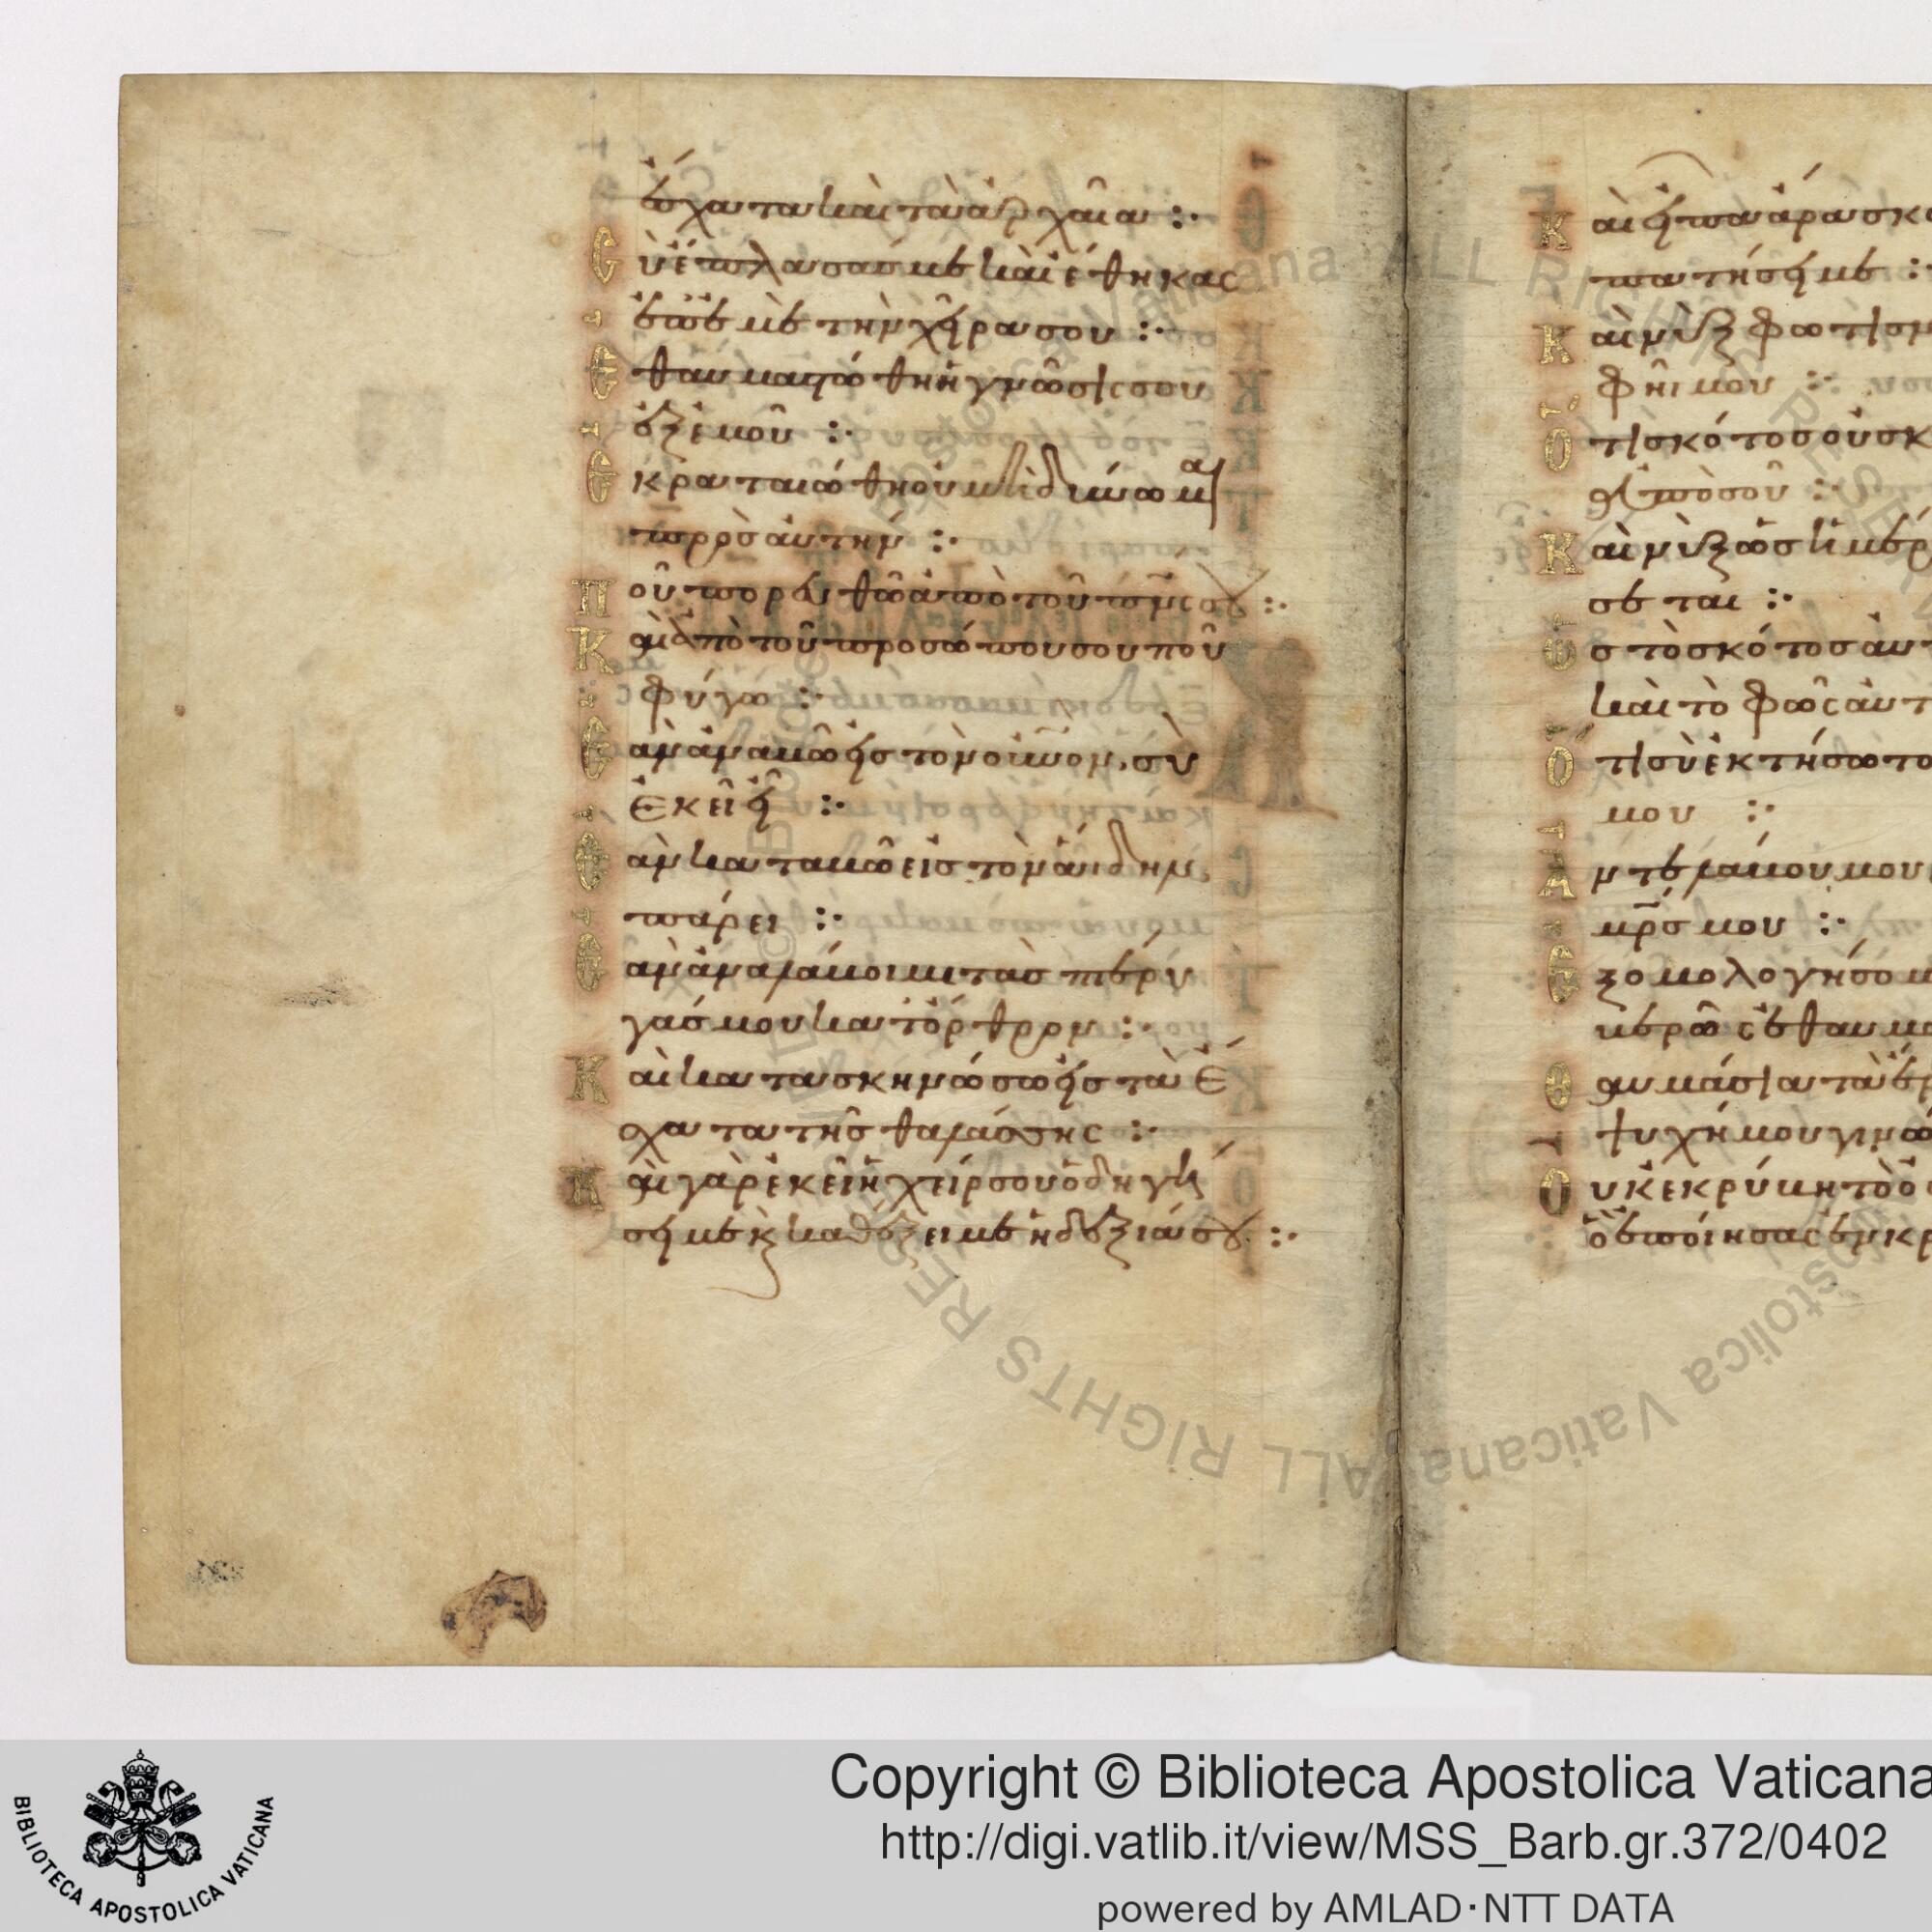 ἔσχατα καὶ τὰ ἀρχαῖα :·
Σὺ ἔπλασάς με καὶ ἔθηκας
ἐπ' ἐμὲ τὴν χεῖρα σου :·
Ἐθαυμαστώθη ἡ γνῶσίς σου
ἐξ ἐμοῦ :·
Ἐκραταιώθη οὐ μὴ δύνωμαι
πρὸς αὐτήν :·
Ποῦ πορευθῶ ἀπὸ τοῦ πνς σου :·
Καὶ ἀπὸ τοῦ προσώπου σου ποῦ
φύγω :·
Ἐὰν ἀναβῶ εἰς τὸν οὐνον, σὺ
ἐκεῖ εἶ :·
Ἐὰν καταβῶ εἰς τὸν ἅιδην,
πάρει :·
Ἐὰν ἀναλάβοιμι τὰς πτέρυ
γάς μου κατ' ὄρθρον :·
Καὶ κατασκηνώσω εἰς τὰ ἔ
σχατα τῆς θαλάσσης :·
Καὶ γὰρ ἐκεῖ ἡ χείρ σου ὁδηγή
σει με κ καθέξει με ἡ δεξιά σου :·
Καὶ εἶπα ἄρα σκό
πατήσει με :·
Καὶ νὺξ φωτισμ
φῆι μου :·
Ὅτι σκότος οὐ σκ
ἀπὸ σοῦ :·
Καὶ νὺξ ὡς ἡμέρ
σεται :·
Ὡς τὸ σκότος αὐτ
καὶ τὸ φῶς αὐτ
Ὅτι σὺ ἐκτήσω το
μου :·
Ἀντελάβου μου
μρς μου :·
Ἐξομολογήσομ
βερῶς ἐθαυμα
Θαυμάσια τὰ ἔρ
ψυχή μου γινώ
Οὐκ ἐκρύβη τὸ ὀ
ὃ ἐποίησας ἐν κρ
BIBLIOTECA APOSTOLICA VATICANA
Copyright © Biblioteca Apostolica Vaticana
http://digi.vatlib.it/view/MSS_Barb.gr.372/0402
powered by AMLAD·NTT DATA